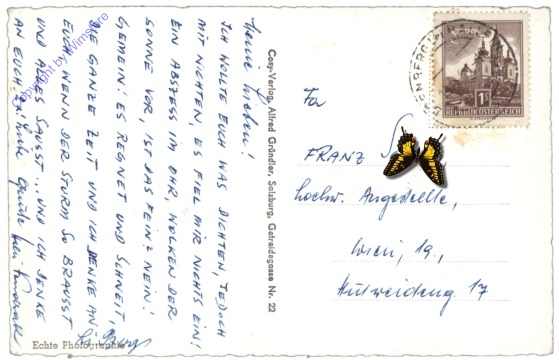 Meine Lieben!
ICH WOLLTE EUCH WAS DICHTEN, JEDOCH
MIT NICHTEN, ES FIEL MIR NICHTS EIN!
EIN ABSZESS IM OHR, WOLKEN DER
SONNE VOR, IST DAS FEIN? NEIN!
GEMEIN! ES REGNET UND SCHNEIT,
DIE GANZE ZEIT UND ICH DENKE AN
EUCH WENN DER STURM SO BRAUSST
UND ALLES SAUSST... UND ICH DENKE
AN EUCH
Echte Photographie
Cosy-Verlag, Alfred Gründler, Salzburg, Getreidegasse Nr. 22
REPUBLIK ÖSTERREICH
Fa
FRANZ
hochw. Angestellte,
Wien, 19.,
Hutweideng. 17